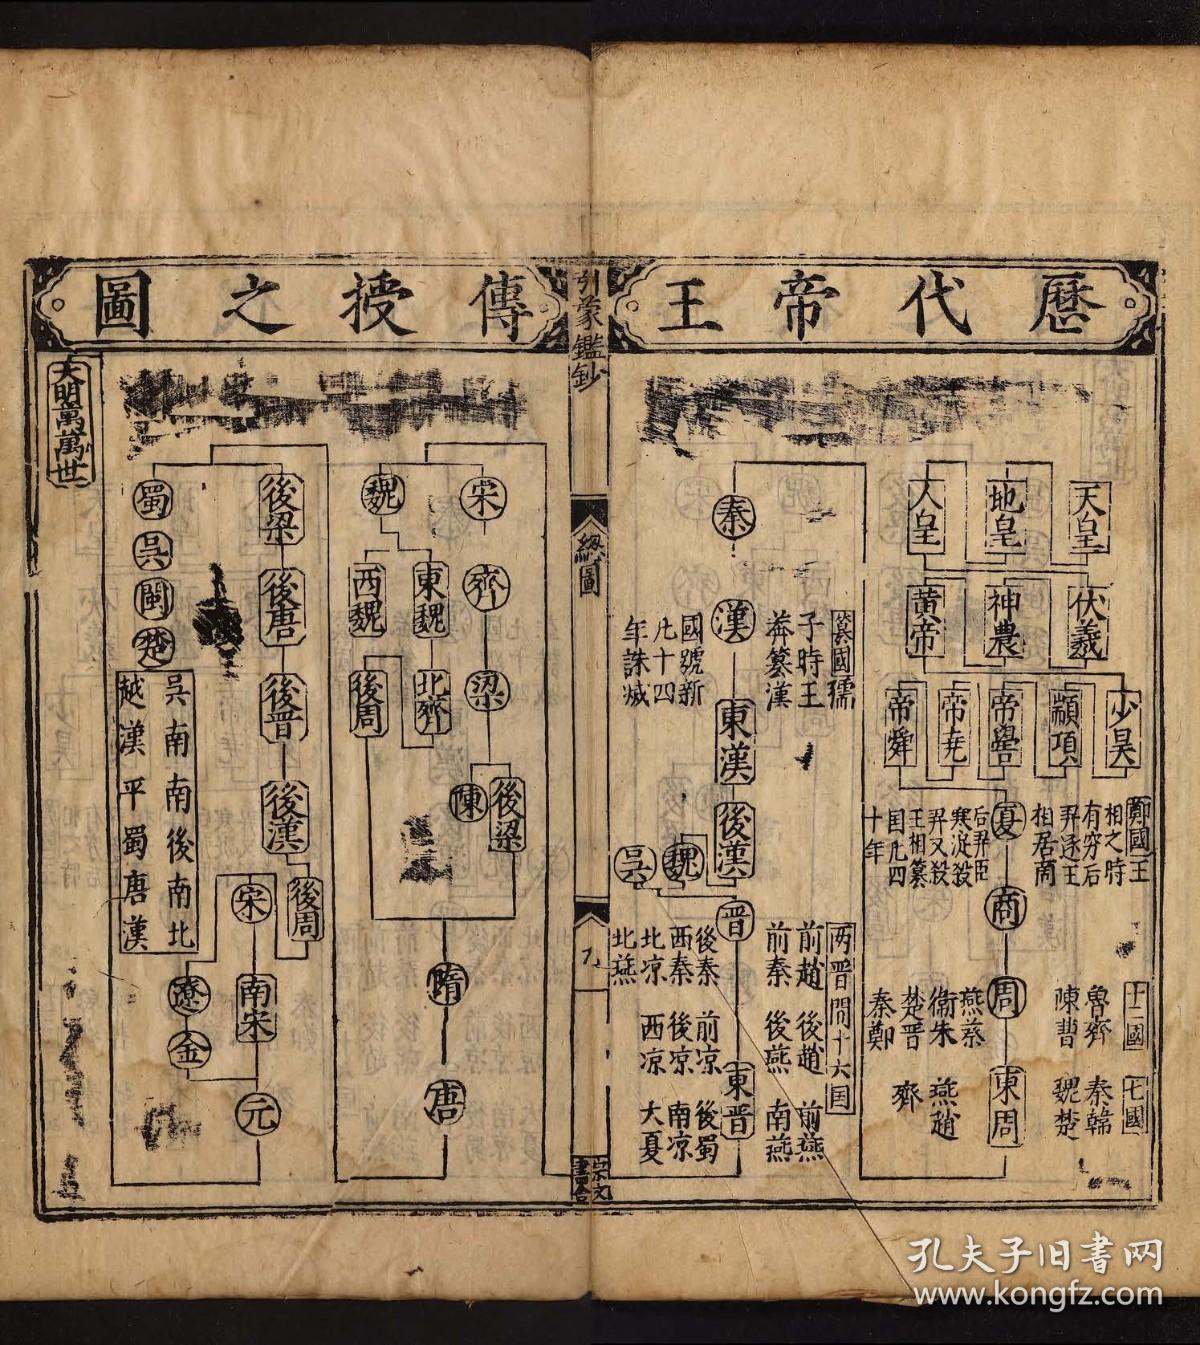 歷代帝王
傳授之圖
引蒙鑑鈔
總圖
九
崇文
書舍
天皇
地皇
人皇
伏羲
神農
黃帝
少昊
顓頊
帝嚳
帝堯
帝舜
夏
商
周
東周
鄭國王
相之時
有穷后
羿逐王
相居商
后羿臣
寒浞殺
羿又殺
王相篡
国凡四
十年
十二國
魯齊
陳曹
燕蔡
衛朱
楚晋
秦鄭
七國
秦韓
魏楚
燕趙
齊
秦
漢
東漢
後漢
魏
吳
晋
東晋
篡國孺
子時王
莽篡漢
國號新
凡十四
年誅滅
两晋間十六国
前趙 後趙 前燕
前秦 後燕 南燕
後秦 前凉 後蜀
西秦 後凉 南凉
北凉 西凉 大夏
北燕
宋
齊
梁
陳
後梁
魏
東魏
西魏
北齊
後周
隋
唐
後梁
後唐
後晋
後漢
後周
宋
南宋
遼
金
元
蜀
吳
閩
楚
吳南南後南北
越漢平蜀唐漢
大明萬萬世
孔夫子旧書网
www.kongfz.com